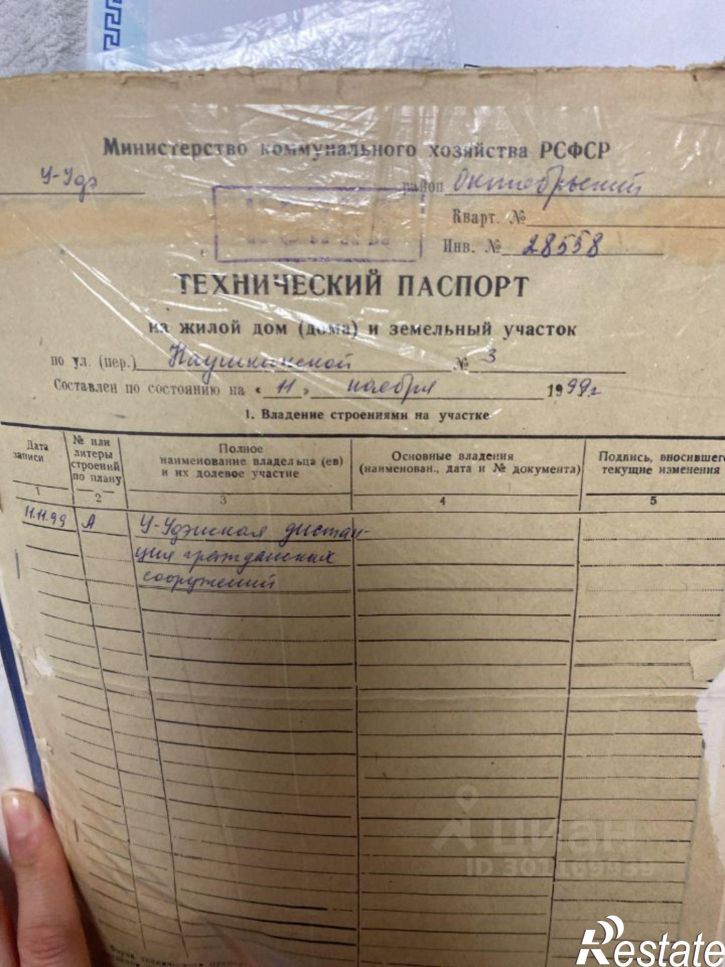 Министерство коммунального хозяйства РСФСР
У-Удэ
район Октябрьский
Кварт. №
Инв. № 28558
ТЕХНИЧЕСКИЙ ПАСПОРТ
на жилой дом (дома) и земельный участок
по ул. (пер.) № 3
Составлен по состоянию на « 11 » ноября 1999г
1. Владение строениями на участке
Дата записи
№ или литеры строений по плану
Полное наименование владельца (ев) и их долевое участие
Основные владения (наименован., дата и № документа)
Подпись, вносившего текущие изменения
1 2 3 4 5
11.11.99 А У-Удэнская дистан-
ция гражданских
сооружений
циан
ID 301169939
Restate